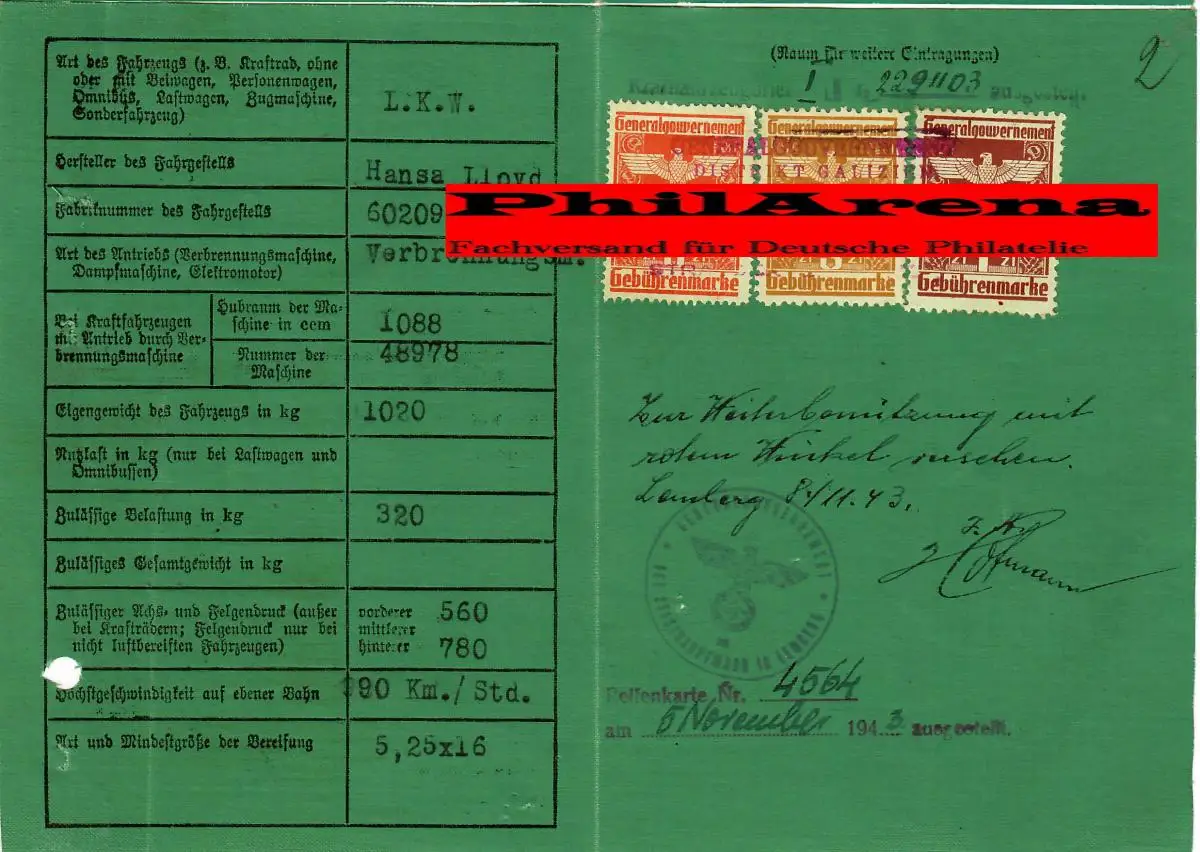 Art des Fahrzeugs (z. B. Kraftrad, ohne
oder mit Beiwagen, Personenwagen,
Omnibus, Lastwagen, Zugmaschine,
Sonderfahrzeug)
L.K.W.
Hersteller des Fahrgestells
Hansa Lloyd
Fabriknummer des Fahrgestells
60209
Art des Antriebs (Verbrennungsmaschine,
Dampfmaschine, Elektromotor)
Verbrennungsm.
Bei Kraftfahrzeugen
mit Antrieb durch Ver-
brennungsmaschine
Hubraum der Ma-
schine in ccm
1088
Nummer der
Maschine
48978
Eigengewicht des Fahrzeugs in kg
1020
Nutzlast in kg (nur bei Lastwagen und
Omnibussen)
Zulässige Belastung in kg
320
Zulässiges Gesamtgewicht in kg
Zulässiger Achs- und Felgendruck (außer
bei Krafträdern; Felgendruck nur bei
nicht luftbereiften Fahrzeugen)
vorderer 560
mittlerer
hinterer 780
Höchstgeschwindigkeit auf ebener Bahn
90 Km./Std.
Art und Mindestgröße der Bereifung
5,25x16
2
(Raum für weitere Eintragungen)
I 229403 ausgestellt.
Generalgouvernement Generalgouvernement Generalgouvernement
GENERALGOUVERNEMENT
DISTRIKT GALIZIEN
PhilArena
Fachversand für Deutsche Philatelie
Gebührenmarke Gebührenmarke Gebührenmarke
Zur Weiterbenützung mit
rotem Winkel versehen.
Lemberg 5/11.43.
GENERALGOUVERNEMENT
DER STADTHAUPTMANN IN LEMBERG
Reifenkarte Nr. 4564
am 5 November 1943 ausgestellt.